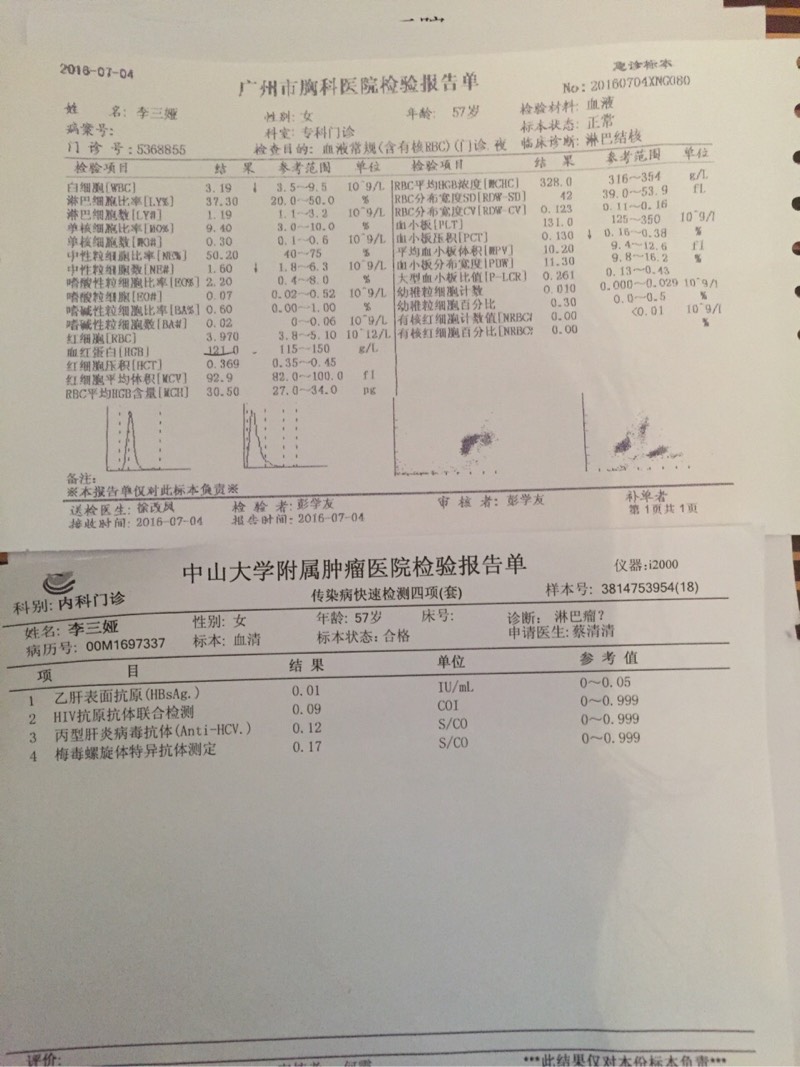 2016-07-04
急诊标本
广州市胸科医院检验报告单
No: 20160704XNG080
姓 名: 李三娅 性别: 女 年龄: 57岁 检验材料: 血液
病案号: 科室: 专科门诊 标本状态: 正常
门 诊 号: 5368855 检查目的: 血液常规(含有核RBC)(门诊 夜 临床诊断: 淋巴结核
检验项目 结 果 参考范围 单位 检验项目 结 果 参考范围 单位
白细胞[WBC] 3.19 ↓ 3.5~9.5 10^9/L RBC平均HGB浓度[MCHC] 328.0 316~354 g/L
淋巴细胞比率[LY%] 37.30 20.0~50.0 % RBC分布宽度SD[RDW-SD] 42 39.0~53.9 fL
淋巴细胞数[LY#] 1.19 1.1~3.2 10^9/L RBC分布宽度CV[RDW-CV] 0.123 0.11~0.16
单核细胞比率[MO%] 9.40 3.0~10.0 % 血小板[PLT] 131.0 125~350 10^9/l
单核细胞数[MO#] 0.30 0.1~0.6 10^9/L 血小板压积[PCT] 0.130 ↓ 0.16~0.38 %
中性粒细胞比率[NE%] 50.20 40~75 % 平均血小板体积[MPV] 10.20 9.4~12.6 fl
中性粒细胞数[NE#] 1.60 ↓ 1.8~6.3 10^9/L 血小板分布宽度[PDW] 11.30 9.8~16.2 %
嗜酸性粒细胞比率[EO%] 2.20 0.4~8.0 % 大型血小板比值[P-LCR] 0.261 0.13~0.43
嗜酸粒细胞[EO#] 0.07 0.02~0.52 10^9/L 幼稚粒细胞计数 0.010 0.000~0.029 10^9/l
嗜碱性粒细胞比率[BA%] 0.60 0.00~1.00 % 幼稚粒细胞百分比 0.30 0.0~0.5 %
嗜碱性粒细胞数[BA#] 0.02 0~0.06 10^9/L 有核红细胞计数值[NRBC# 0.00 <0.01 10^9/l
红细胞[RBC] 3.970 3.8~5.10 10^12/L 有核红细胞百分比[NRBC% 0.00 %
血红蛋白[HGB] 121.0 115~150 g/L
红细胞压积[HCT] 0.369 0.35~0.45
红细胞平均体积[MCV] 92.9 82.0~100.0 fl
RBC平均HGB含量[MCH] 30.50 27.0~34.0 pg
备注:
※本报告单仅对此标本负责※
送检医生: 徐改风 检 验 者: 彭学友 审 核 者: 彭学友 补单者
接收时间: 2016-07-04 报告时间: 2016-07-04 第1页共1页
中山大学附属肿瘤医院检验报告单
仪器:i2000
科别: 内科门诊 传染病快速检测四项(套) 样本号: 3814753954(18)
姓名: 李三娅 性别: 女 年龄: 57岁 床号: 诊断: 淋巴瘤?
病历号: 00M1697337 标本: 血清 标本状态: 合格 申请医生: 蔡清清
项 目 结 果 单位 参 考 值
1 乙肝表面抗原(HBsAg.) 0.01 IU/mL 0~0.05
2 HIV抗原抗体联合检测 0.09 COI 0~0.999
3 丙型肝炎病毒抗体(Anti-HCV.) 0.12 S/CO 0~0.999
4 梅毒螺旋体特异抗体测定 0.17 S/CO 0~0.999
评价:
***此结果仅对本份标本负责***